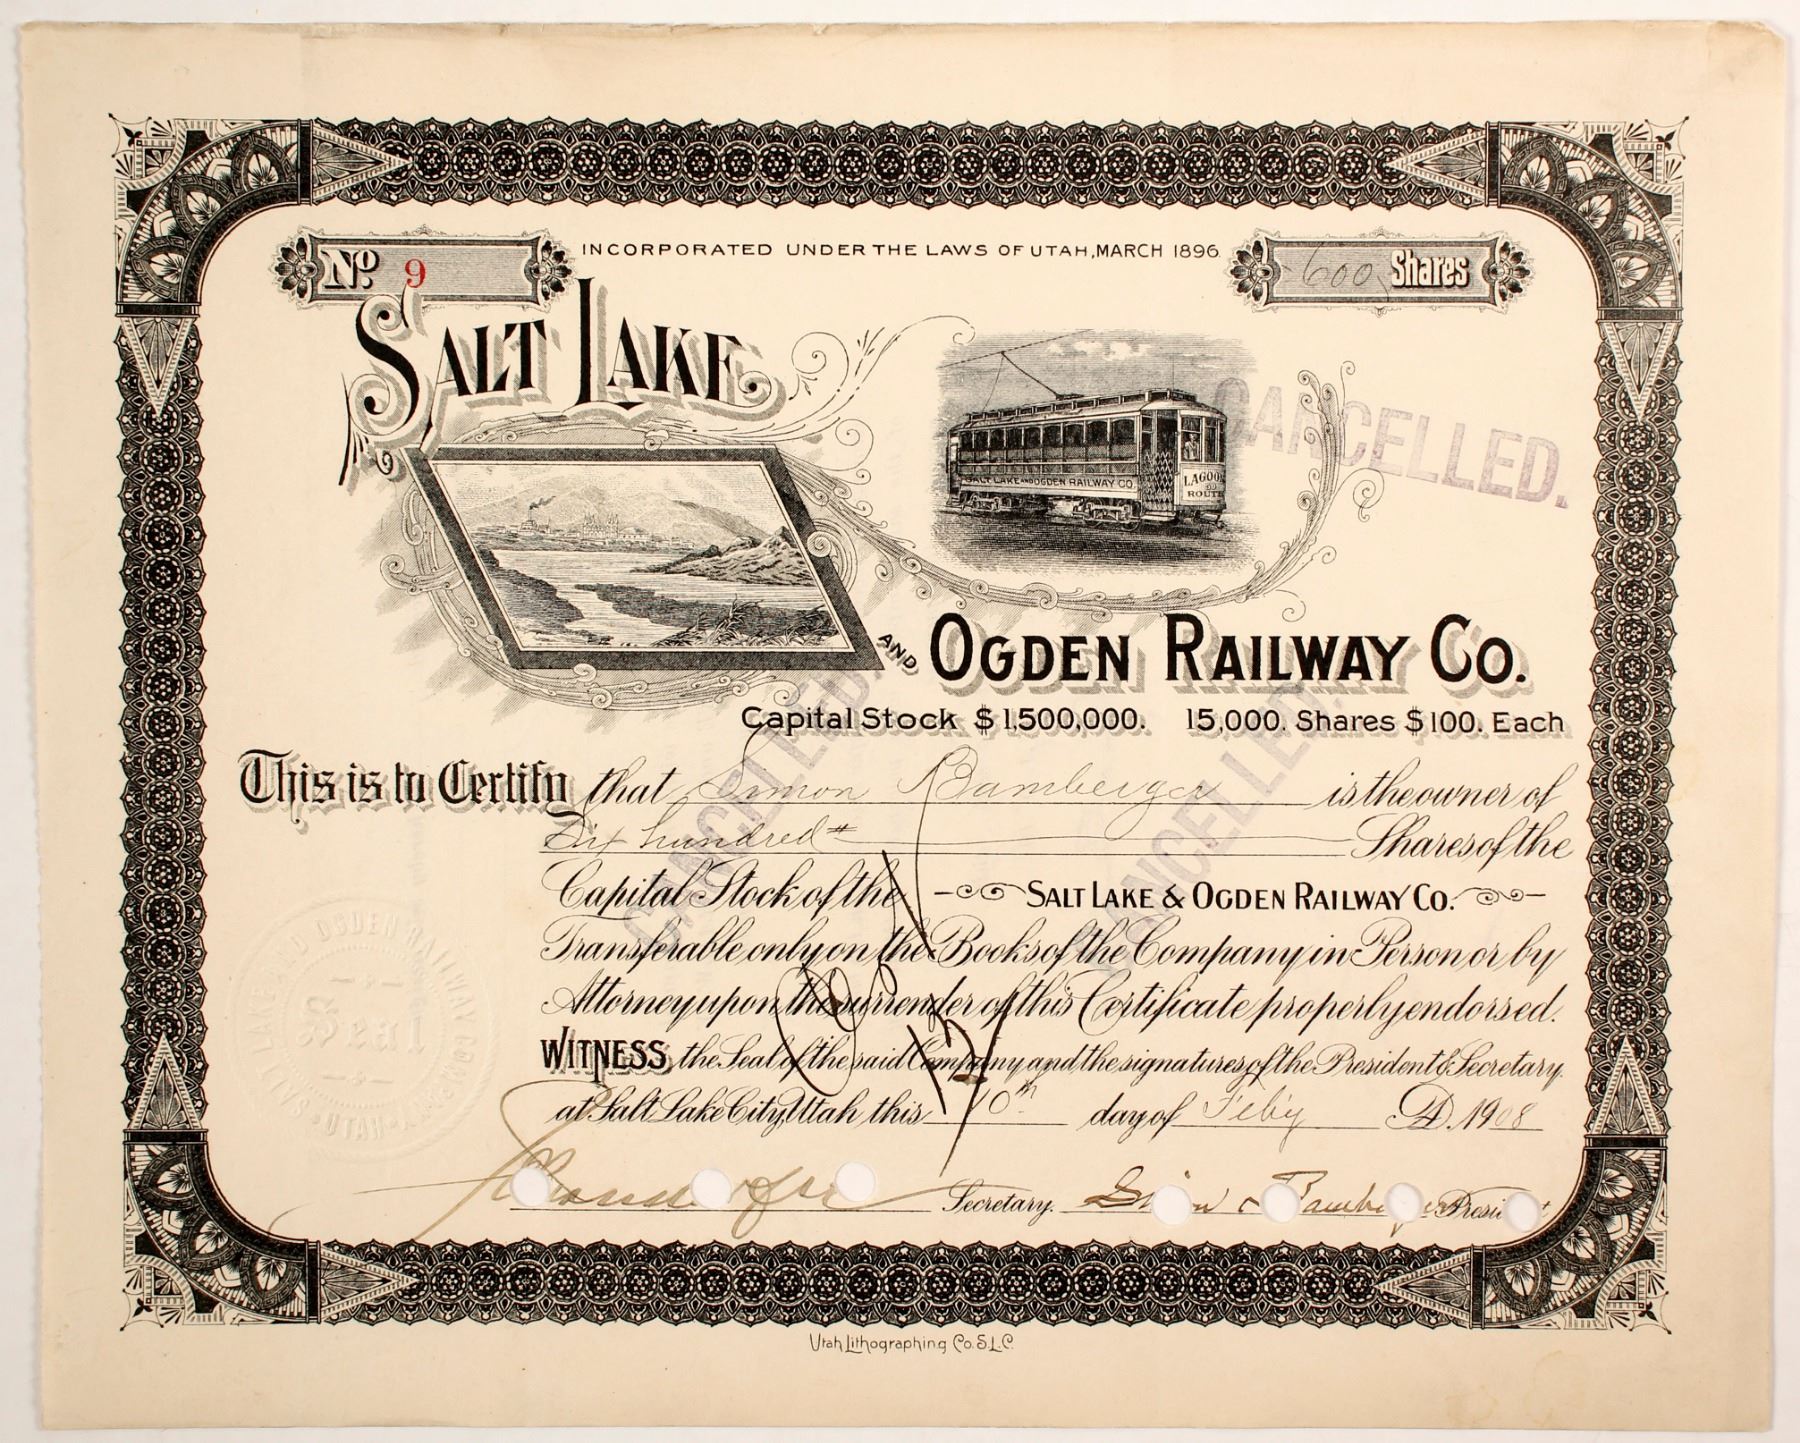 INCORPORATED UNDER THE LAWS OF UTAH, MARCH 1896.
No. 9
600 Shares
SALT LAKE
SALT LAKE AND OGDEN RAILWAY CO.
LAGOON
ROUTE
CANCELLED.
AND OGDEN RAILWAY CO.
Capital Stock $1,500,000. 15,000. Shares $100. Each
CANCELLED.
CANCELLED.
This is to Certify that Simon Bamberger is the owner of
Six hundred Shares of the
Capital Stock of the SALT LAKE & OGDEN RAILWAY CO.
Transferable only on the Books of the Company in Person or by
Attorney upon the surrender of this Certificate properly endorsed.
WITNESS the Seal of the said Company and the signatures of the President & Secretary
at Salt Lake City, Utah this 10th day of Feby A.D. 1908
Secretary. Simon Bamberger President
SALT LAKE AND OGDEN RAILWAY CO.
Seal
UTAH
Utah Lithographing Co. S.L.C.